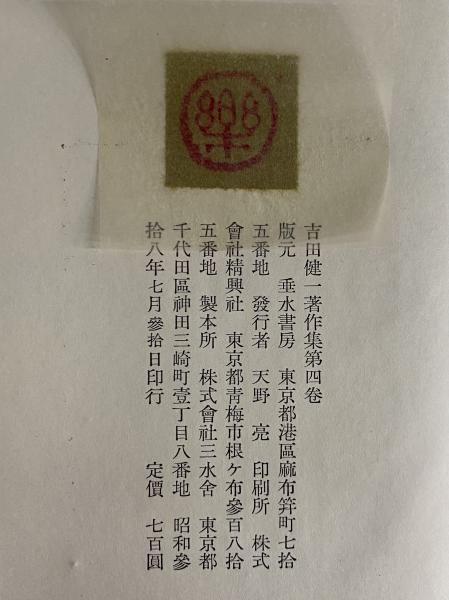 樂
吉田健一著作集第四卷
版元　垂水書房　東京都港區麻布笄町七拾
五番地　發行者　天野　亮　印刷所　株式
會社精興社　東京都靑梅市根ケ布參百八拾
五番地　製本所　株式會社三水舍　東京都
千代田區神田三崎町壹丁目八番地　昭和參
拾八年七月參拾日印行　定價　七百圓